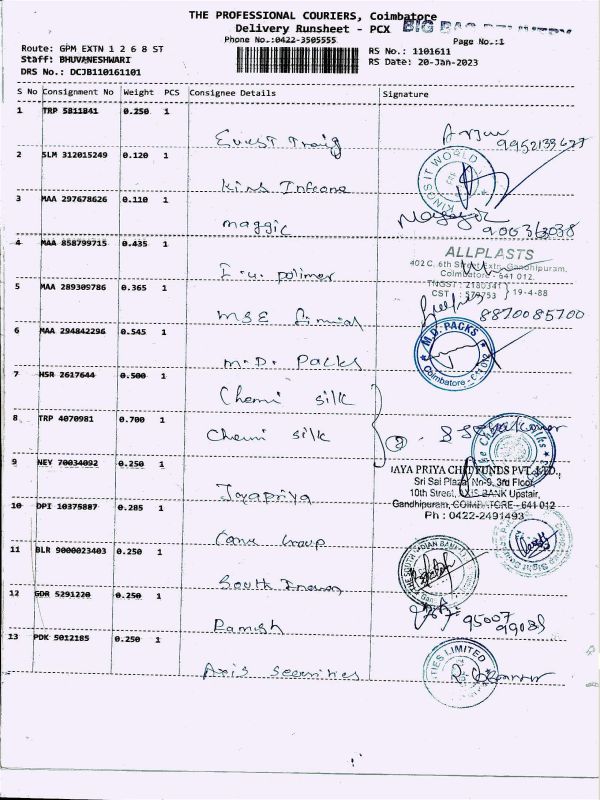 THE PROFESSIONAL COURIERS, Coimbatore
Delivery Runsheet - PCX BIG BAG DELIVERY
Phone No.:0422-3505555 Page No.:1
Route: GPM EXTN 1 2 6 8 ST RS No.: 1101611
Staff: BHUVANESHWARI RS Date: 20-Jan-2023
DRS No.: DCJB110161101
S No Consignment No Weight PCS Consignee Details Signature
1 TRP 5811841 0.250 1
9952139677
2 SLM 312015249 0.120 1
KINGS IT WORLD
3 MAA 297678626 0.110 1
maggic
4 MAA 858799715 0.435 1
ALLPLASTS
402 C, 6th Street Extn, Gandhipuram,
Coimbatore - 641 012.
polimer
TNGST : 2180341
CST : 579753 } 19-4-88
5 MAA 289309786 0.365 1
8870085700
MSE
6 MAA 294842296 0.545 1
M.D. PACKS
Coimbatore - 641 012
M.D. Packs
7 HSR 2617644 0.500 1
Chemi silk
8 TRP 4070981 0.700 1
Chemi silk
9 NEY 70034092 0.250 1
JAYA PRIYA CHIT FUNDS PVT. LTD.,
Sri Sai Plaza, No-9, 3rd Floor,
10th Street, AXIS BANK Upstair,
Gandhipuram, COIMBATORE - 641 012
Ph : 0422-2491493
Jayapriya
10 DPI 10375887 0.285 1
11 BLR 9000023403 0.250 1
THE SOUTH INDIAN BANK
South
12 GDR 5291220 0.250 1
95007
Ramesh
13 PDK 5012185 0.250 1
LIMITED
Axis securities